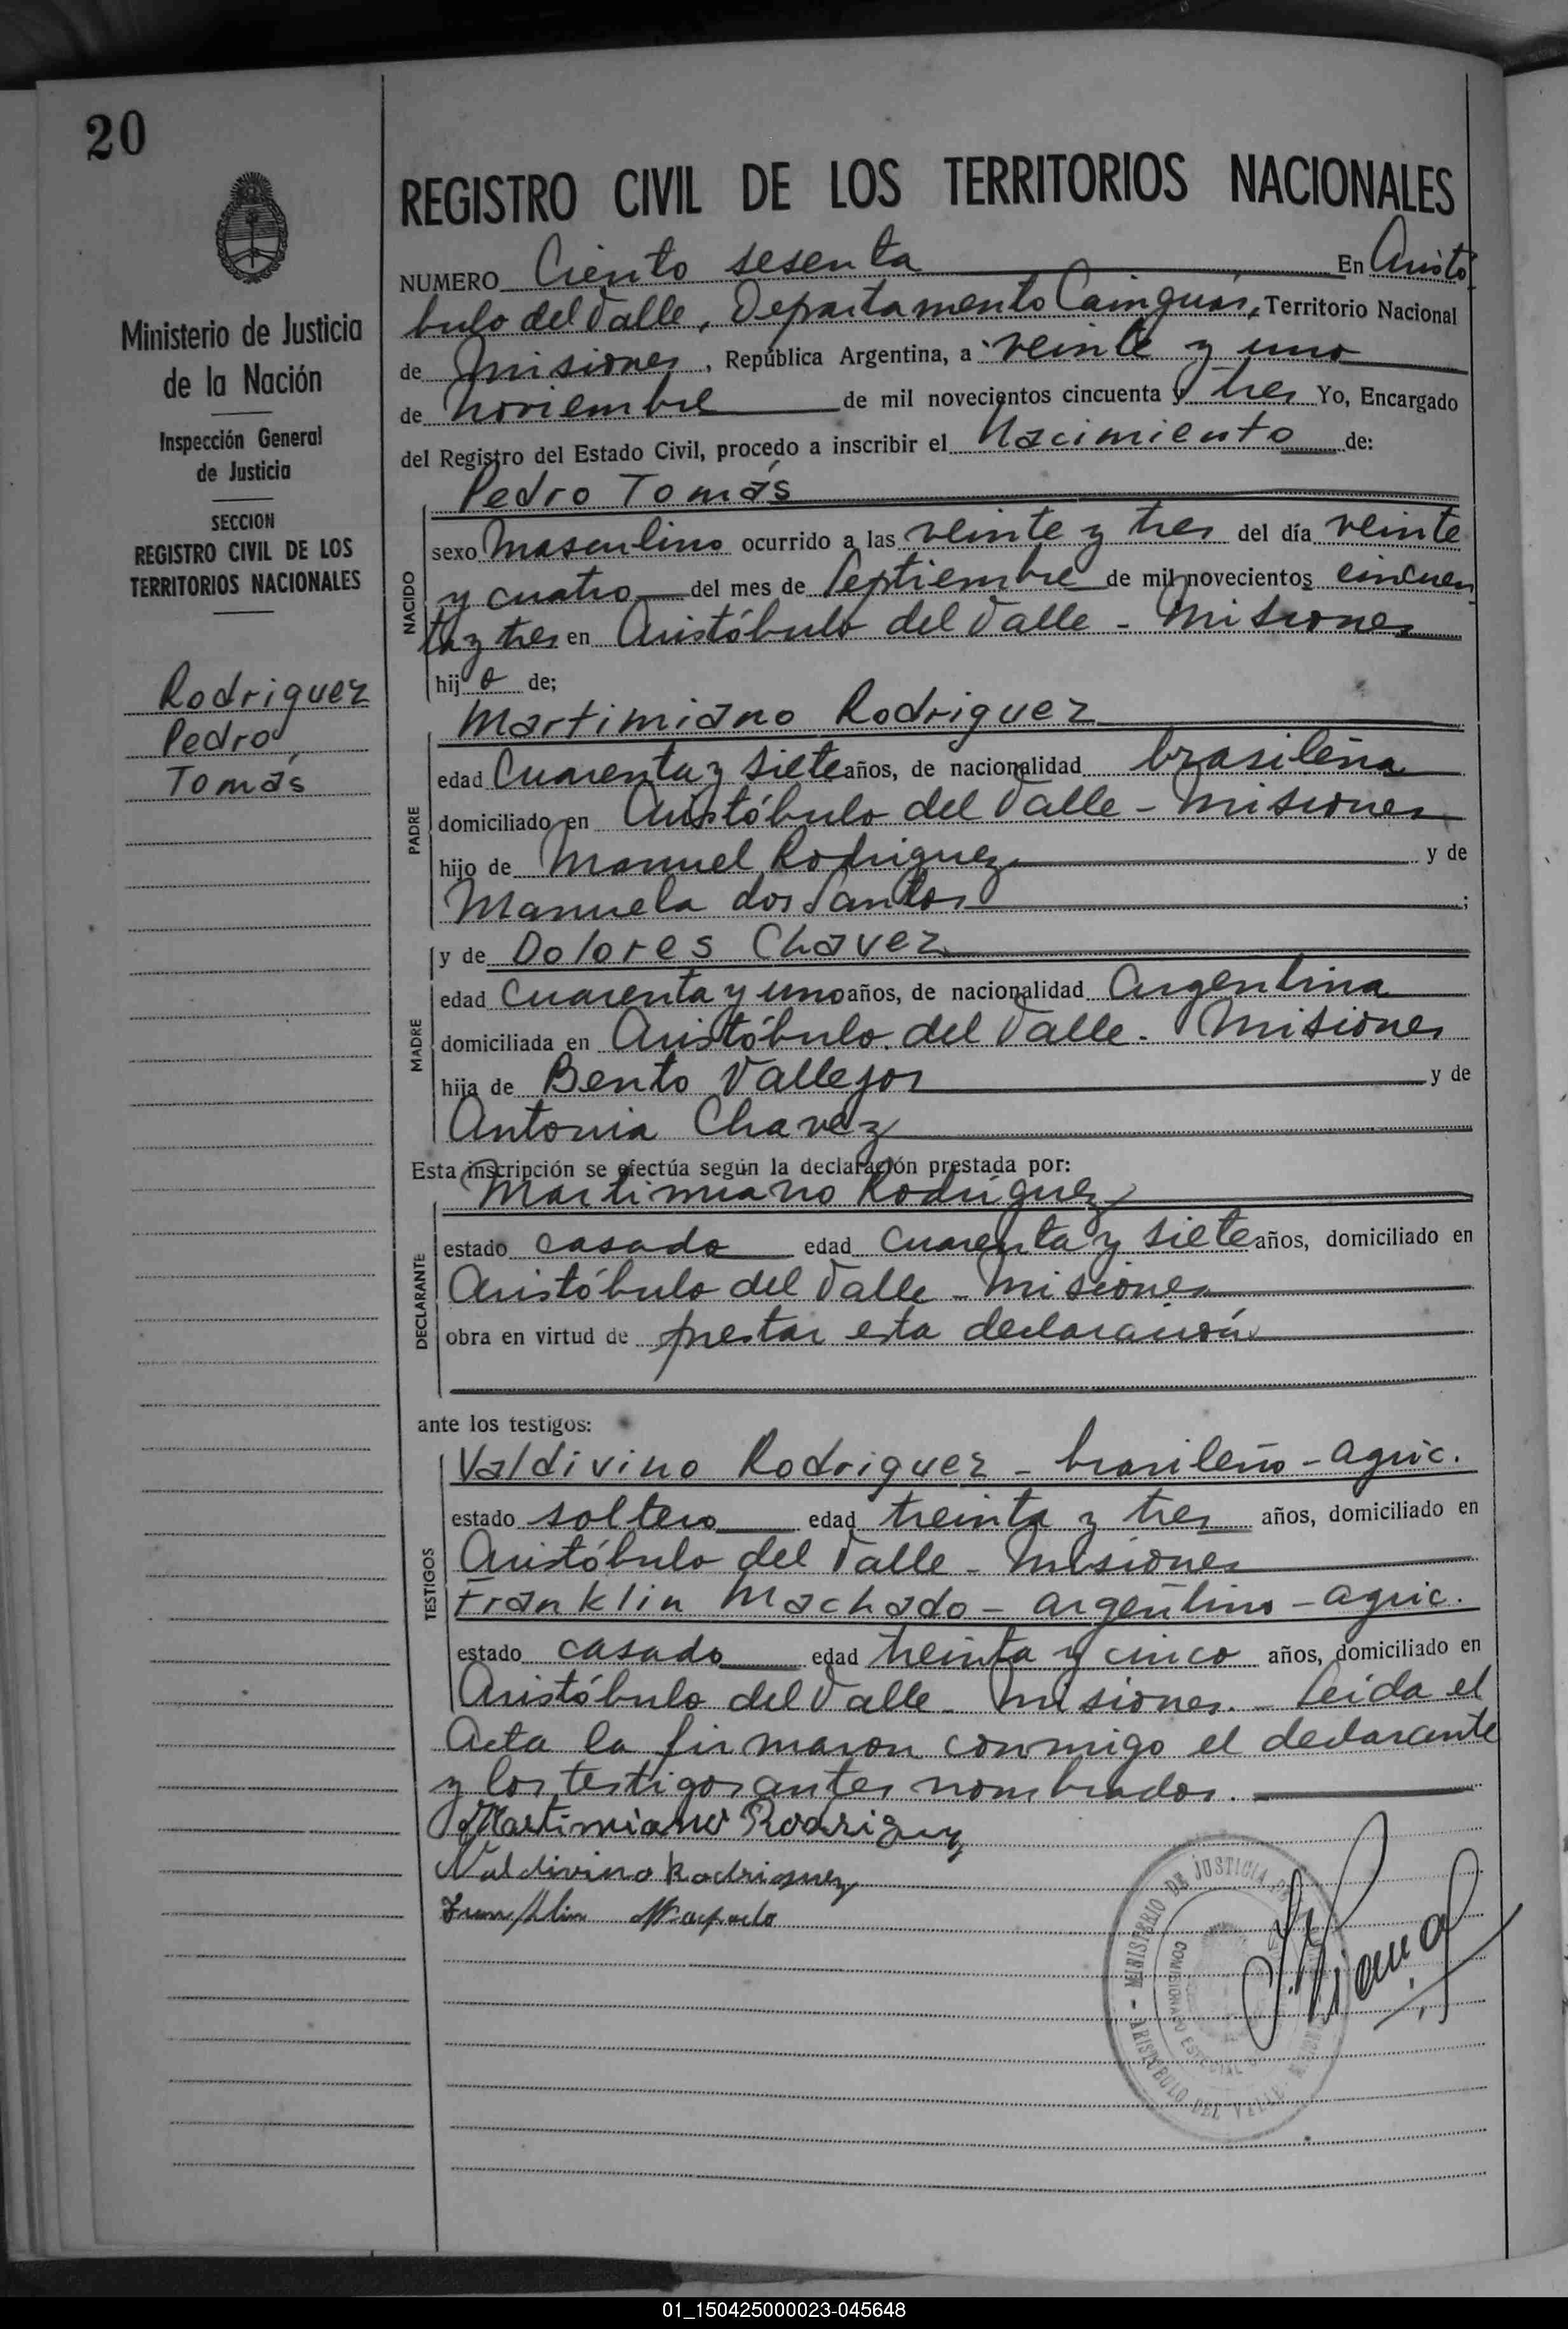 20
Ministerio de Justicia
de la Nación
Inspección General
de Justicia
SECCION
REGISTRO CIVIL DE LOS
TERRITORIOS NACIONALES
Rodriguez
Pedro
Tomás
REGISTRO CIVIL DE LOS TERRITORIOS NACIONALES
NUMERO Ciento sesenta En Aristó
bulo del Valle, Departamento Cainguás, Territorio Nacional
de Misiones, República Argentina, a veinte y uno
de noviembre de mil novecientos cincuenta y tres Yo, Encargado
del Registro del Estado Civil, procedo a inscribir el Nacimiento de:
NACIDO
Pedro Tomás
sexo Masculino ocurrido a las veinte y tres del día veinte
y cuatro del mes de Septiembre de mil novecientos cincuen
ta y tres en Aristóbulo del Valle - Misiones
hijo de;
PADRE
Martimiano Rodriguez
edad Cuarenta y siete años, de nacionalidad brasileña
domiciliado en Aristóbulo del Valle - Misiones
hijo de Manuel Rodriguez y de
Manuela dos Santos ;
MADRE
y de Dolores Chavez
edad Cuarenta y uno años, de nacionalidad Argentina
domiciliada en Aristóbulo del Valle - Misiones
hija de Bento Vallejos y de
Antonia Chavez
Esta inscripción se efectúa según la declaración prestada por:
DECLARANTE
Martimiano Rodriguez
estado casado edad cuarenta y siete años, domiciliado en
Aristóbulo del Valle - Misiones
obra en virtud de prestar esta declaración
ante los testigos:
TESTIGOS
Valdivino Rodriguez - brasileño - agric.
estado soltero edad treinta y tres años, domiciliado en
Aristóbulo del Valle - Misiones
Franklin Machado - argentino - agric.
estado casado edad treinta y cinco años, domiciliado en
Aristóbulo del Valle - Misiones. - Leida el
Acta la firmaron conmigo el declarante
y los testigos antes nombrados.
Martimiano Rodriguez
Valdivino Rodriguez
Franklin Machado
MINISTERIO DE JUSTICIA
ARISTOBULO DEL VALLE
01_150425000023-045648